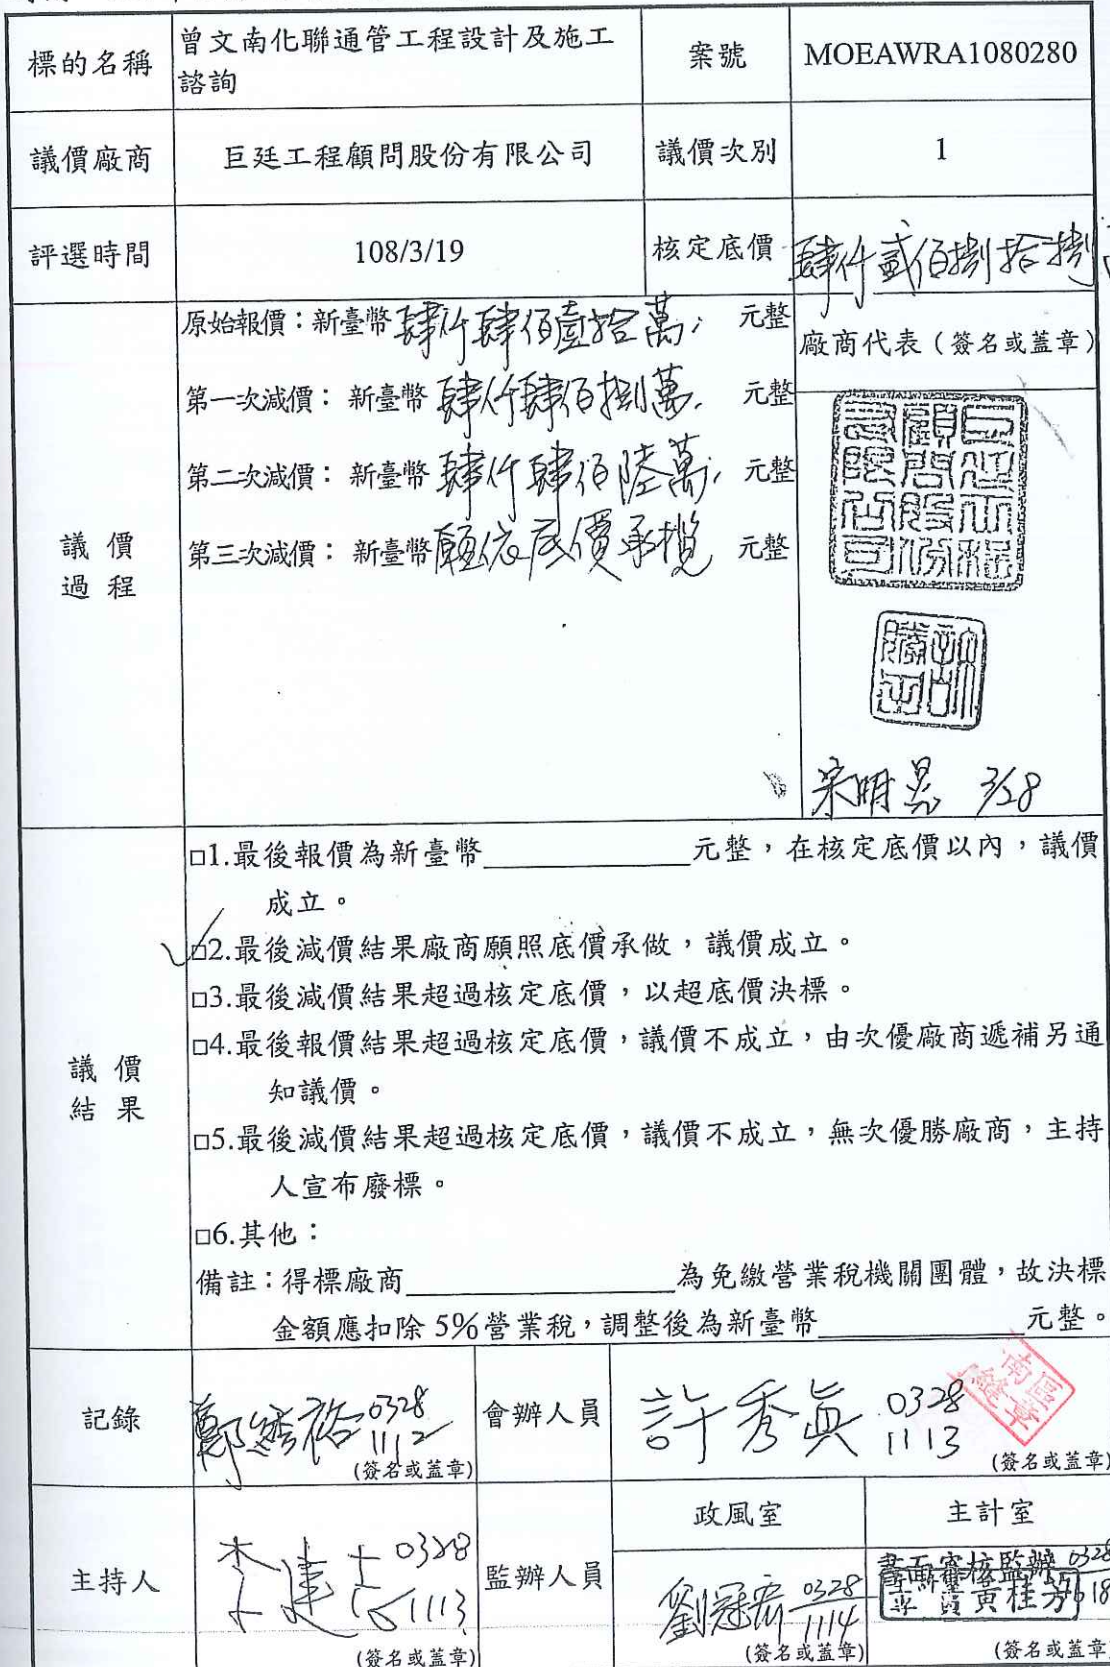 標的名稱
曾文南化聯通管工程設計及施工
諮詢
案號
MOEAWRA1080280
議價廠商
巨廷工程顧問股份有限公司
議價次別
1
評選時間
108/3/19
核定底價
肆仟貳佰捌拾捌
議價
過程
原始報價：新臺幣肆仟肆佰壹拾萬 元整
第一次減價： 新臺幣肆仟肆佰捌萬 元整
第二次減價： 新臺幣肆仟肆佰陸萬 元整
第三次減價： 新臺幣願依底價承攬 元整
廠商代表（簽名或蓋章）
巨廷工程
顧問股份
有限公司
宋明晃 3/28
議價
結果
□1.最後報價為新臺幣＿＿＿＿＿＿元整，在核定底價以內，議價
成立。
□2.最後減價結果廠商願照底價承做，議價成立。
□3.最後減價結果超過核定底價，以超底價決標。
□4.最後報價結果超過核定底價，議價不成立，由次優廠商遞補另通
知議價。
□5.最後減價結果超過核定底價，議價不成立，無次優勝廠商，主持
人宣布廢標。
□6.其他：
備註：得標廠商＿＿＿＿＿＿＿＿為免繳營業稅機關團體，故決標
金額應扣除 5%營業稅，調整後為新臺幣＿＿＿＿＿＿元整。
記錄
0328
1112
(簽名或蓋章)
會辦人員
許秀真 0328
1113
(簽名或蓋章)
南區
縫章
主持人
李建 0328
1113
(簽名或蓋章)
監辦人員
政風室
劉冠 0328
1114
(簽名或蓋章)
主計室
書面審核監辦 0328
黃桂芳
(簽名或蓋章)